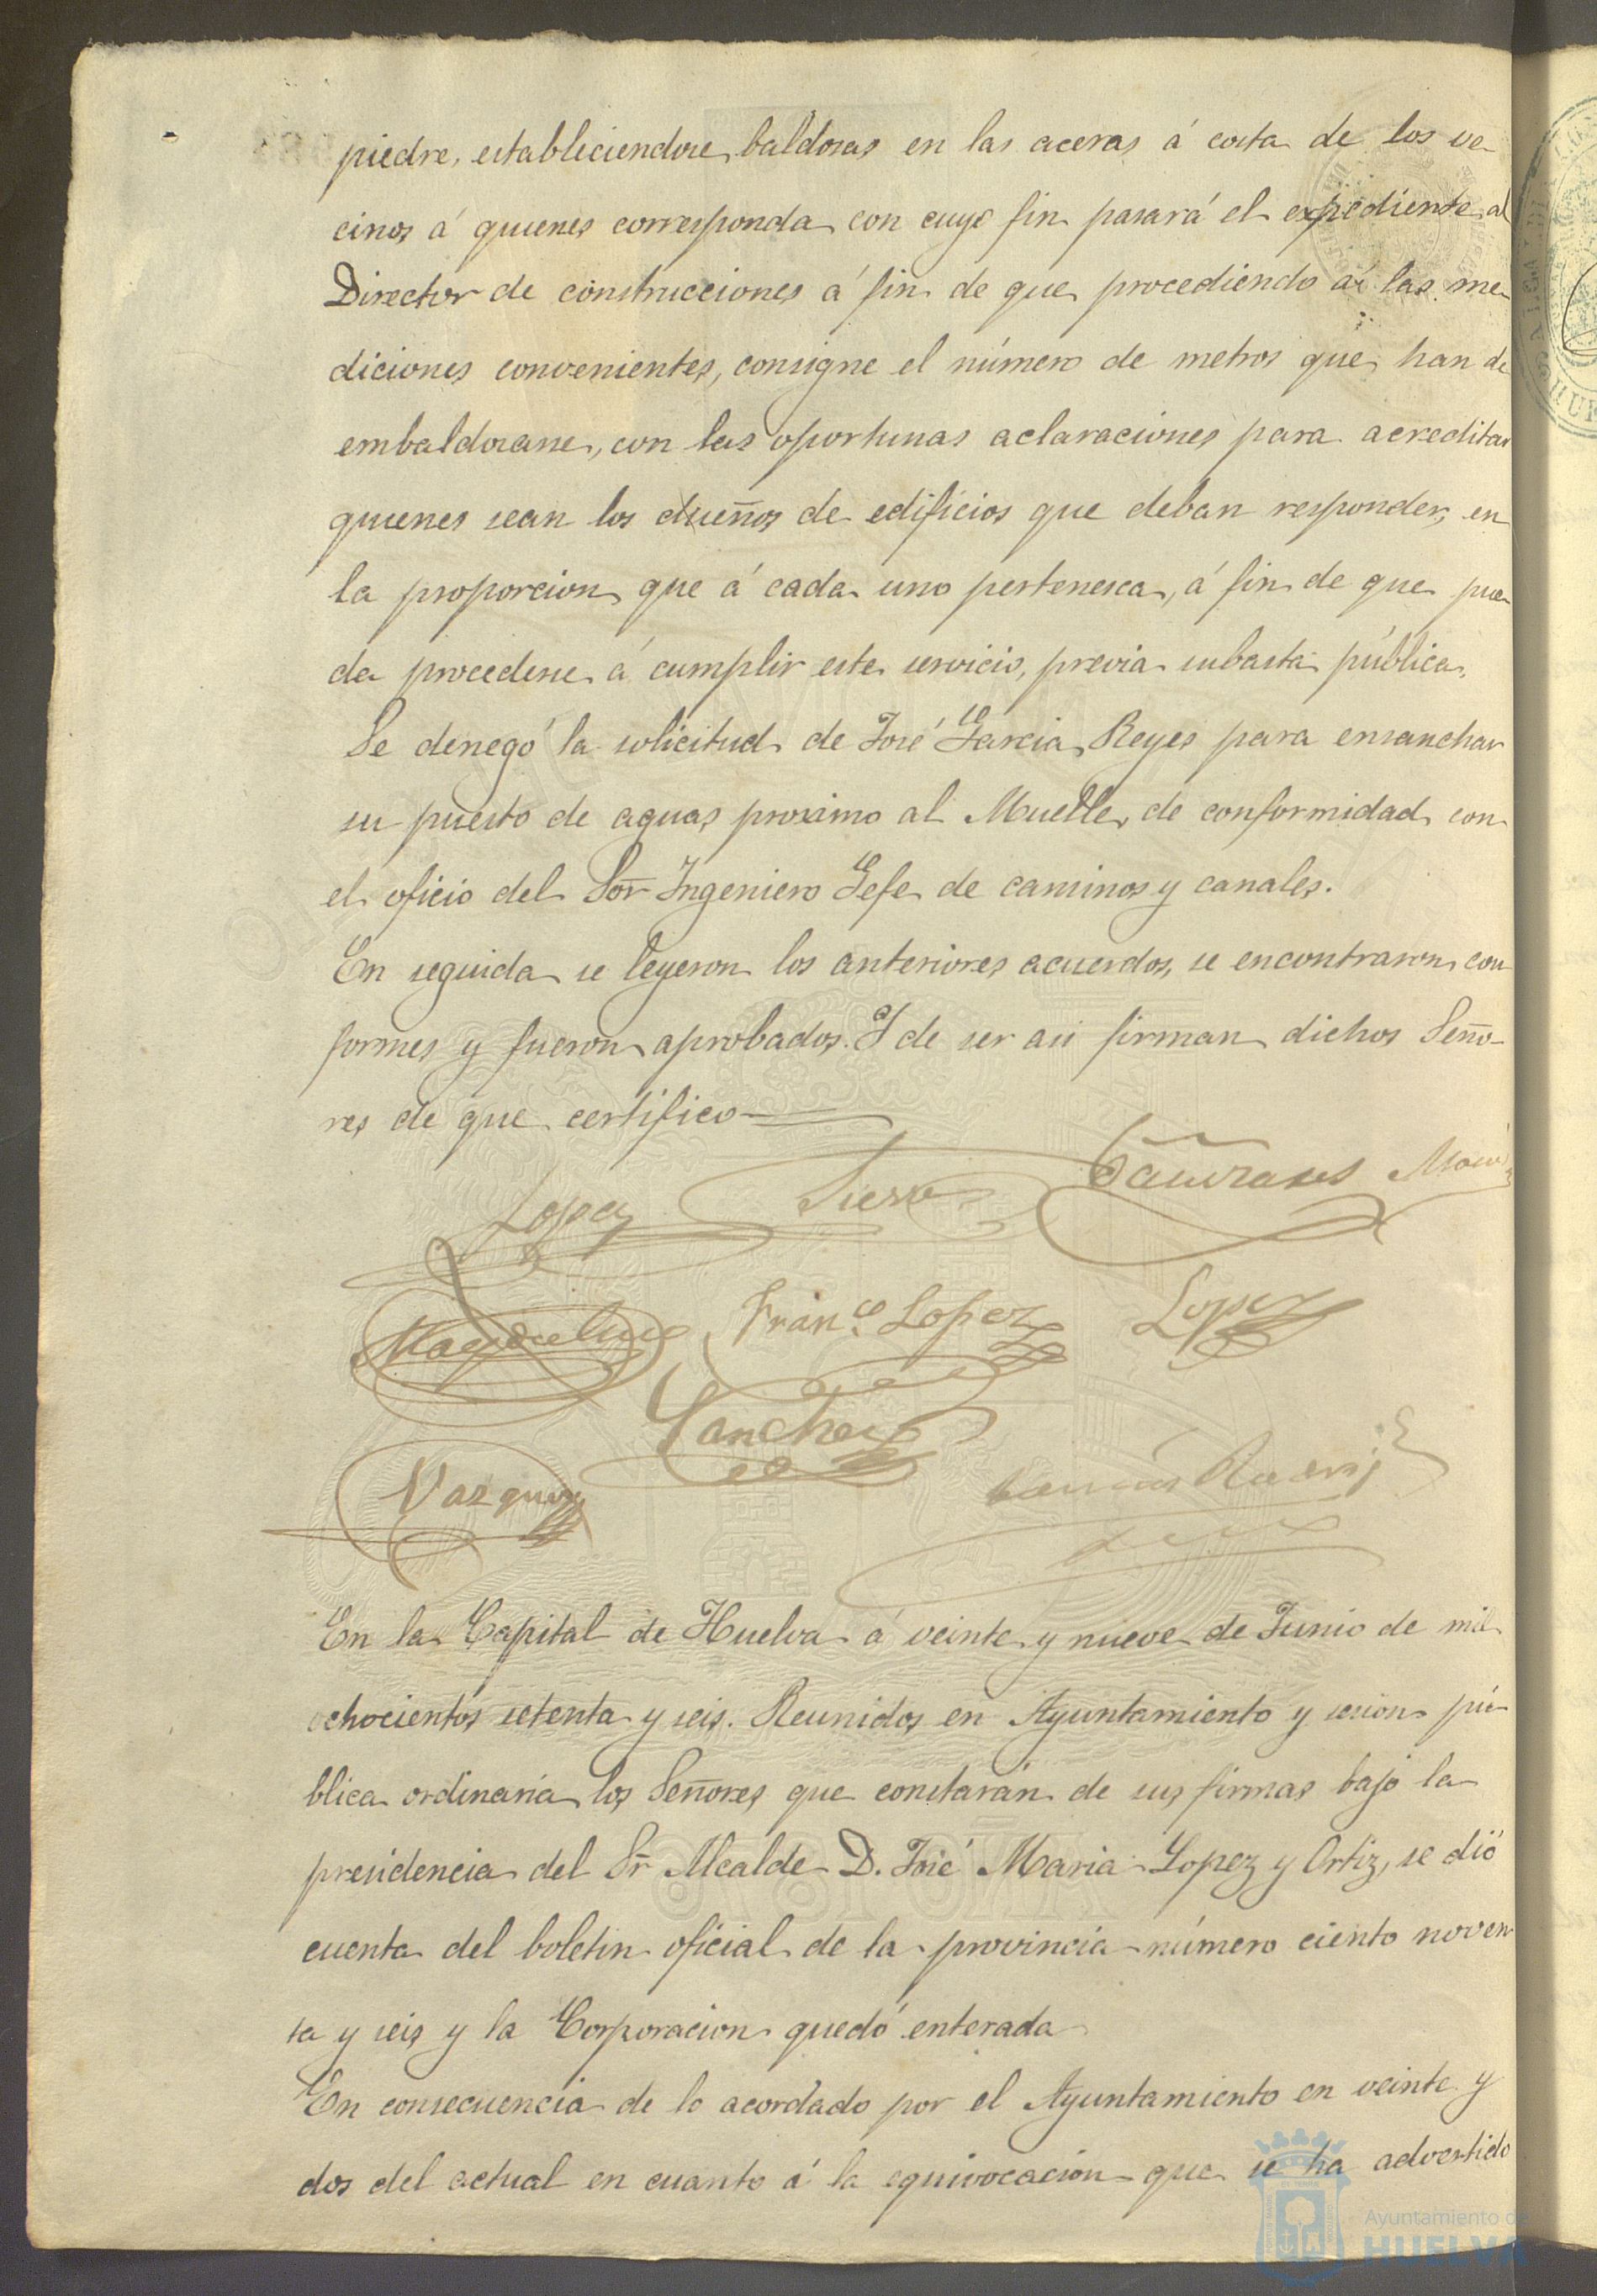 piedra, estableciendose baldosas en las aceras á costa de los ve-
cinos á quienes corresponda con cuyo fin pasará el expediente al
Director de construcciones á fin de que procediendo á las me-
diciones convenientes, consigne el número de metros que han de
embaldosarse, con las oportunas aclaraciones para acreditar
quienes sean los dueños de edificios que deban responder, en
la proporcion que á cada uno pertenesca, á fin de que pue-
da procederse á cumplir este servicio, previa subasta pública.
Se denegó la solicitud de José Garcia Reyes para ensanchar
su puesto de aguas proximo al Muelle, de conformidad con
el oficio del Sor Ingeniero Gefe de caminos y canales.
En seguida se leyeron los anteriores acuerdos, se encontraron con-
formes y fueron aprobados. Y de ser asi firman dichos Seño-
res de que certifico
Lopez
Franco Lopez
Lopez
Sanchez
Vazquez
En la Capital de Huelva á veinte y nueve de Junio de mil
ochocientos setenta y seis. Reunidos en Ayuntamiento y sesion pú-
blica ordinaria los Señores que constarán de sus firmas bajo la
presidencia del Sr Alcalde D. José Maria Lopez y Ortiz, se dió
cuenta del boletin oficial de la provincia número ciento noven-
ta y seis y la Corporacion quedó enterada
En consecuencia de lo acordado por el Ayuntamiento en veinte y
dos del actual en cuanto á la equivocacion que se ha advertido
Ayuntamiento de
HUELVA